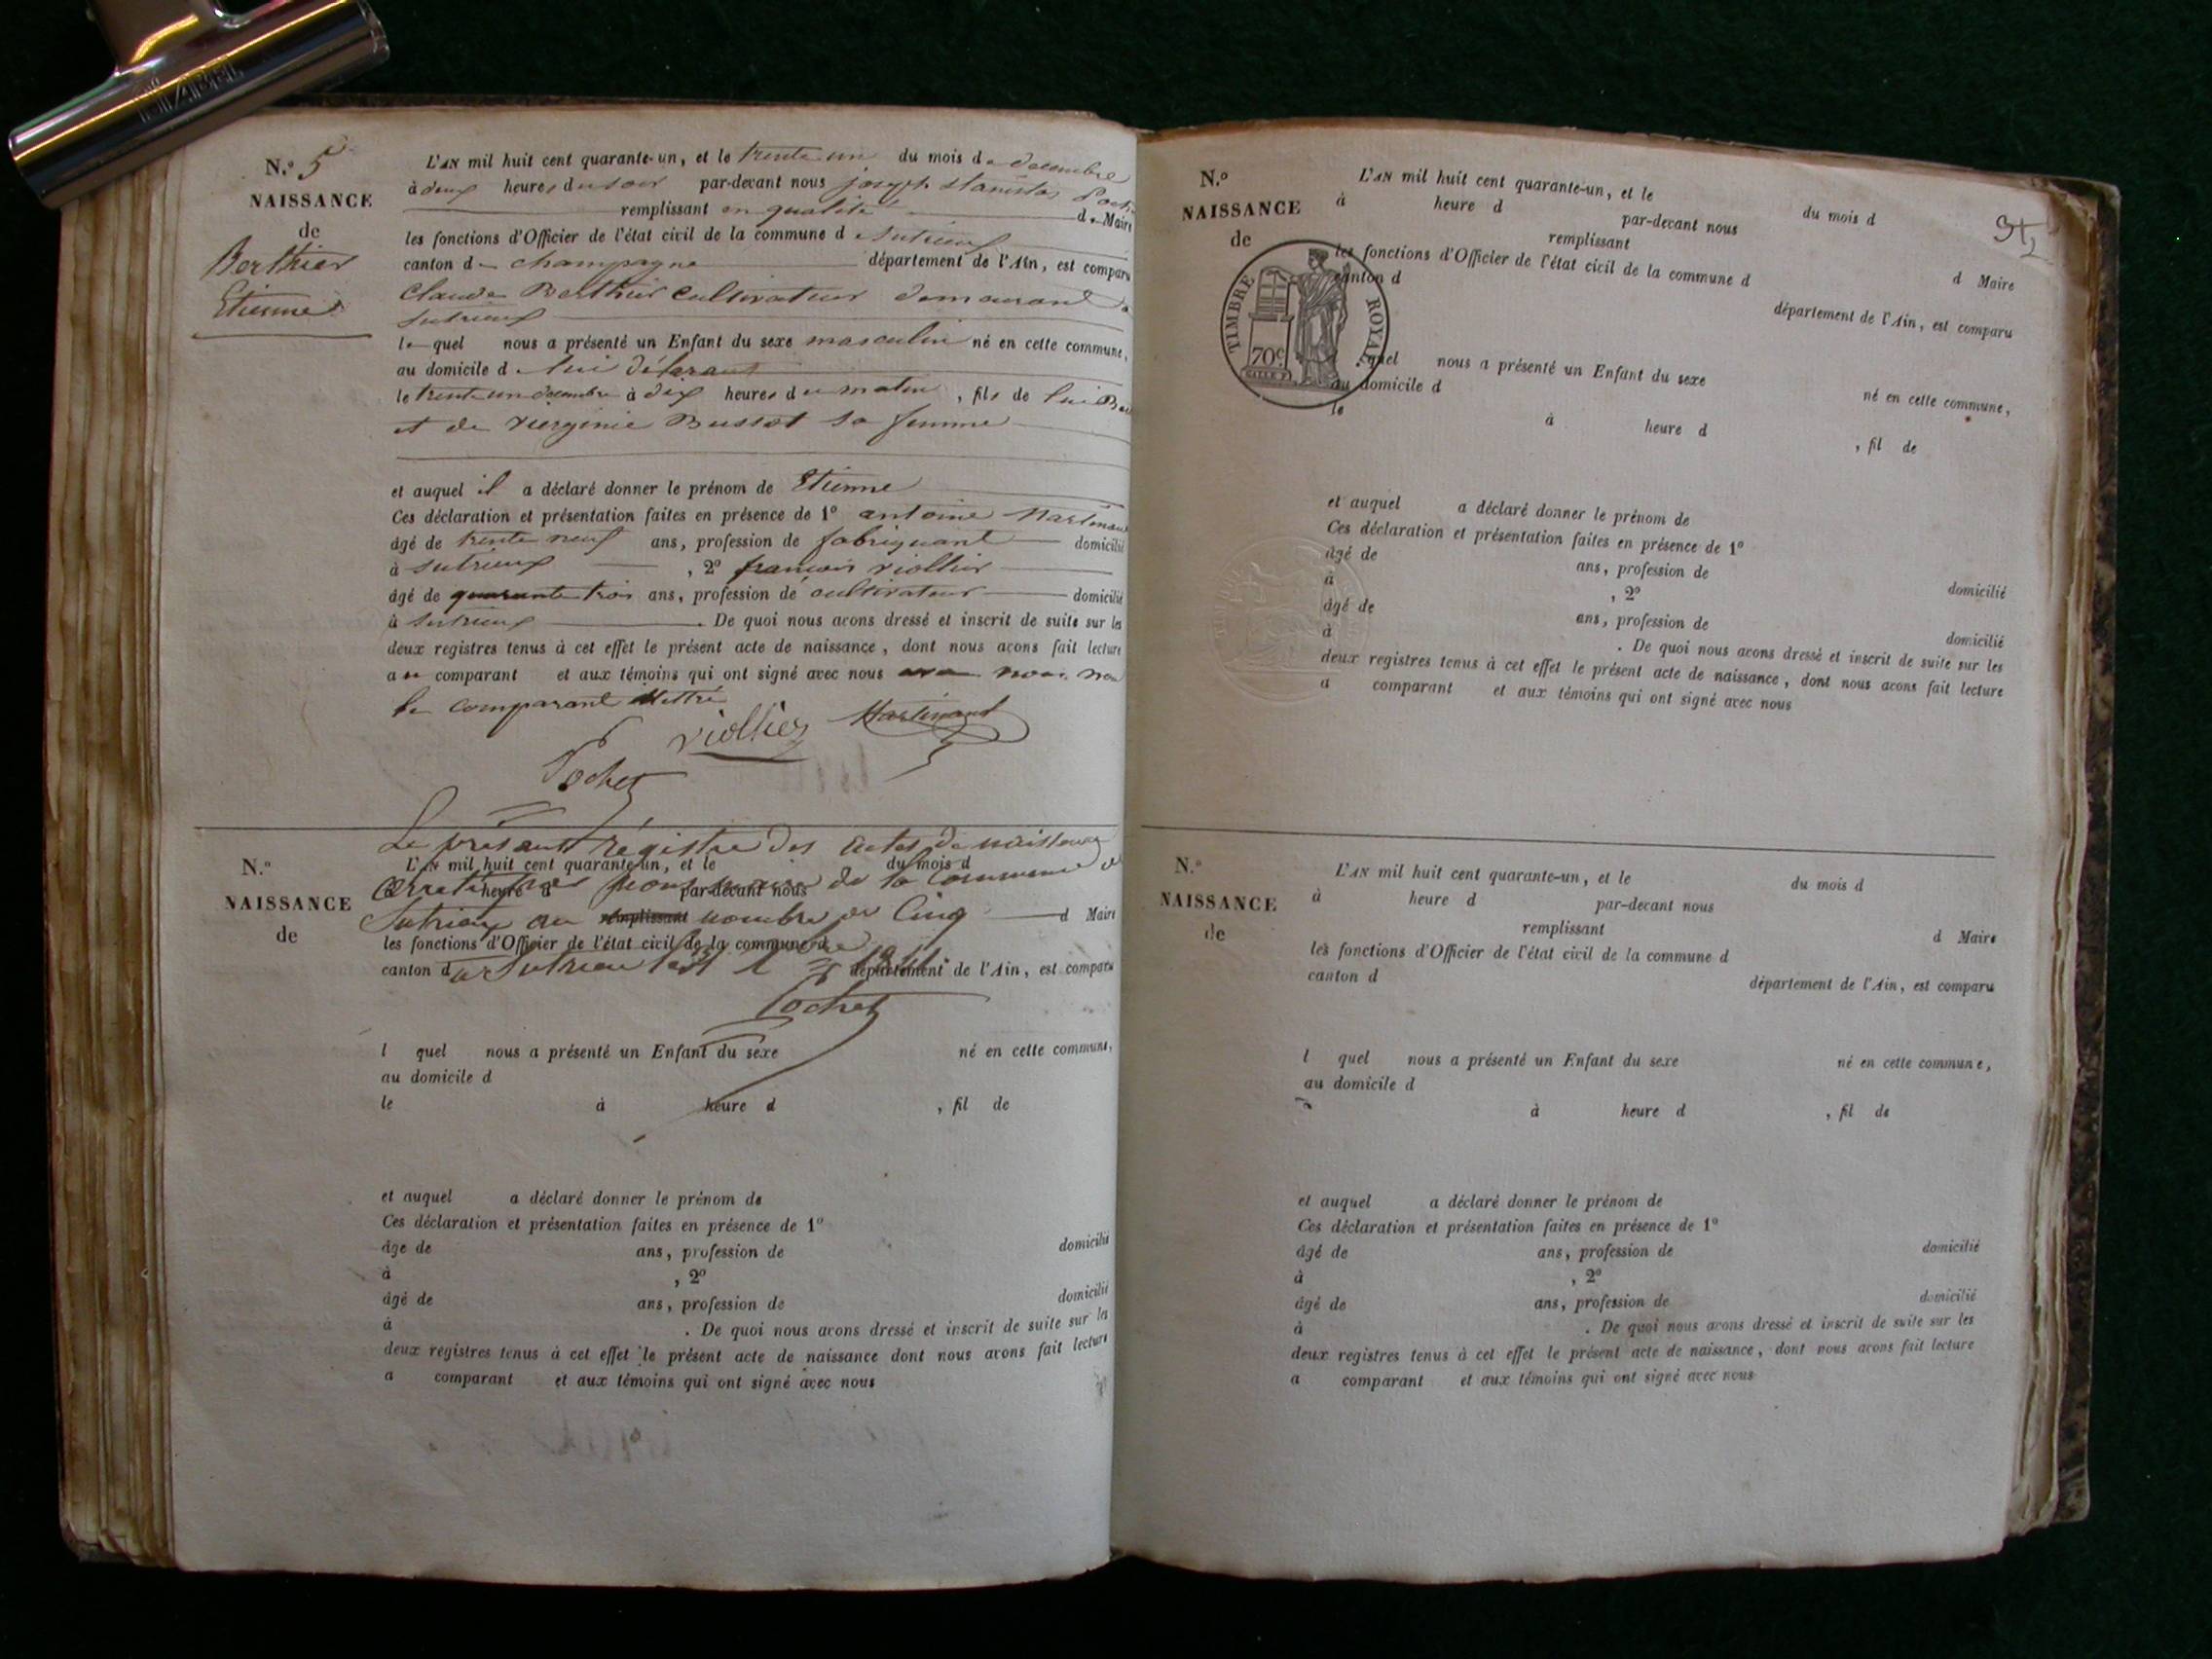 N.º 5
NAISSANCE
de
Berthier
Etienne
L'AN mil huit cent quarante-un, et le trente un du mois de decembre
à deux heures du soir par-devant nous joseph stanislas
remplissant en qualité de Maire
les fonctions d'Officier de l'état civil de la commune de Sutrieux
canton de champagne département de l'Ain, est comparu
Claude Berthier cultivateur demeurant à
Sutrieux
lequel nous a présenté un Enfant du sexe masculin né en cette commune,
au domicile de lui déclarant
le trente un decembre à dix heures du matin, fils de lui
et de Viergenie Bussot sa femme
et auquel il a déclaré donner le prénom de Etienne
Ces déclaration et présentation faites en présence de 1º antoine Martinand
âgé de trente neuf ans, profession de fabriquant domicilié
à Sutrieux, 2º francois Viollier
âgé de quarante trois ans, profession de cultivateur domicilié
à Sutrieux. De quoi nous avons dressé et inscrit de suite sur les
deux registres tenus à cet effet le présent acte de naissance, dont nous avons fait lecture
au comparant et aux témoins qui ont signé avec nous non
le comparant illettré
Viollier Martinand
Pochet
N.º
NAISSANCE
de
Le présent régistre des actes de naissances
L'AN mil huit cent quarante-un, et le du mois d
arrêté par nous maire de la commune de
à heure d par-devant nous
Sutrieux au nombre de Cinq
remplissant d Maire
les fonctions d'Officier de l'état civil de la commune d
a Sutrieu le 31 Xbre 1841
canton d département de l'Ain, est comparu
Pochet
l quel nous a présenté un Enfant du sexe né en cette commune,
au domicile d
le à heure d , fil de
et auquel a déclaré donner le prénom de
Ces déclaration et présentation faites en présence de 1º
âgé de ans, profession de domicilié
à , 2º
âgé de ans, profession de domicilié
à . De quoi nous avons dressé et inscrit de suite sur les
deux registres tenus à cet effet le présent acte de naissance dont nous avons fait lecture
a comparant et aux témoins qui ont signé avec nous
N.º
NAISSANCE
de
TIMBRE ROYAL
70 c
L'AN mil huit cent quarante-un, et le du mois d
à heure d par-devant nous
remplissant d Maire
les fonctions d'Officier de l'état civil de la commune d
canton d département de l'Ain, est comparu
quel nous a présenté un Enfant du sexe né en cette commune,
au domicile d
le à heure d , fil de
et auquel a déclaré donner le prénom de
Ces déclaration et présentation faites en présence de 1º
âgé de ans, profession de domicilié
à , 2º
âgé de ans, profession de domicilié
à . De quoi nous avons dressé et inscrit de suite sur les
deux registres tenus à cet effet le présent acte de naissance, dont nous avons fait lecture
a comparant et aux témoins qui ont signé avec nous
N.º
NAISSANCE
de
L'AN mil huit cent quarante-un, et le du mois d
à heure d par-devant nous
remplissant d Maire
les fonctions d'Officier de l'état civil de la commune d
canton d département de l'Ain, est comparu
l quel nous a présenté un Enfant du sexe né en cette commune,
au domicile d
à heure d , fil de
et auquel a déclaré donner le prénom de
Ces déclaration et présentation faites en présence de 1º
âgé de ans, profession de domicilié
à , 2º
âgé de ans, profession de domicilié
à . De quoi nous avons dressé et inscrit de suite sur les
deux registres tenus à cet effet le présent acte de naissance, dont nous avons fait lecture
a comparant et aux témoins qui ont signé avec nous